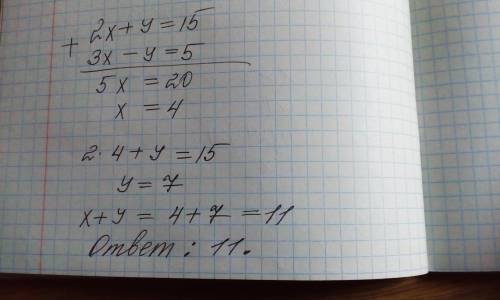 + 2x + y = 15
3x - y = 5
5x = 20
x = 4
2 · 4 + y = 15
y = 7
x + y = 4 + 7 = 11
Ответ: 11.